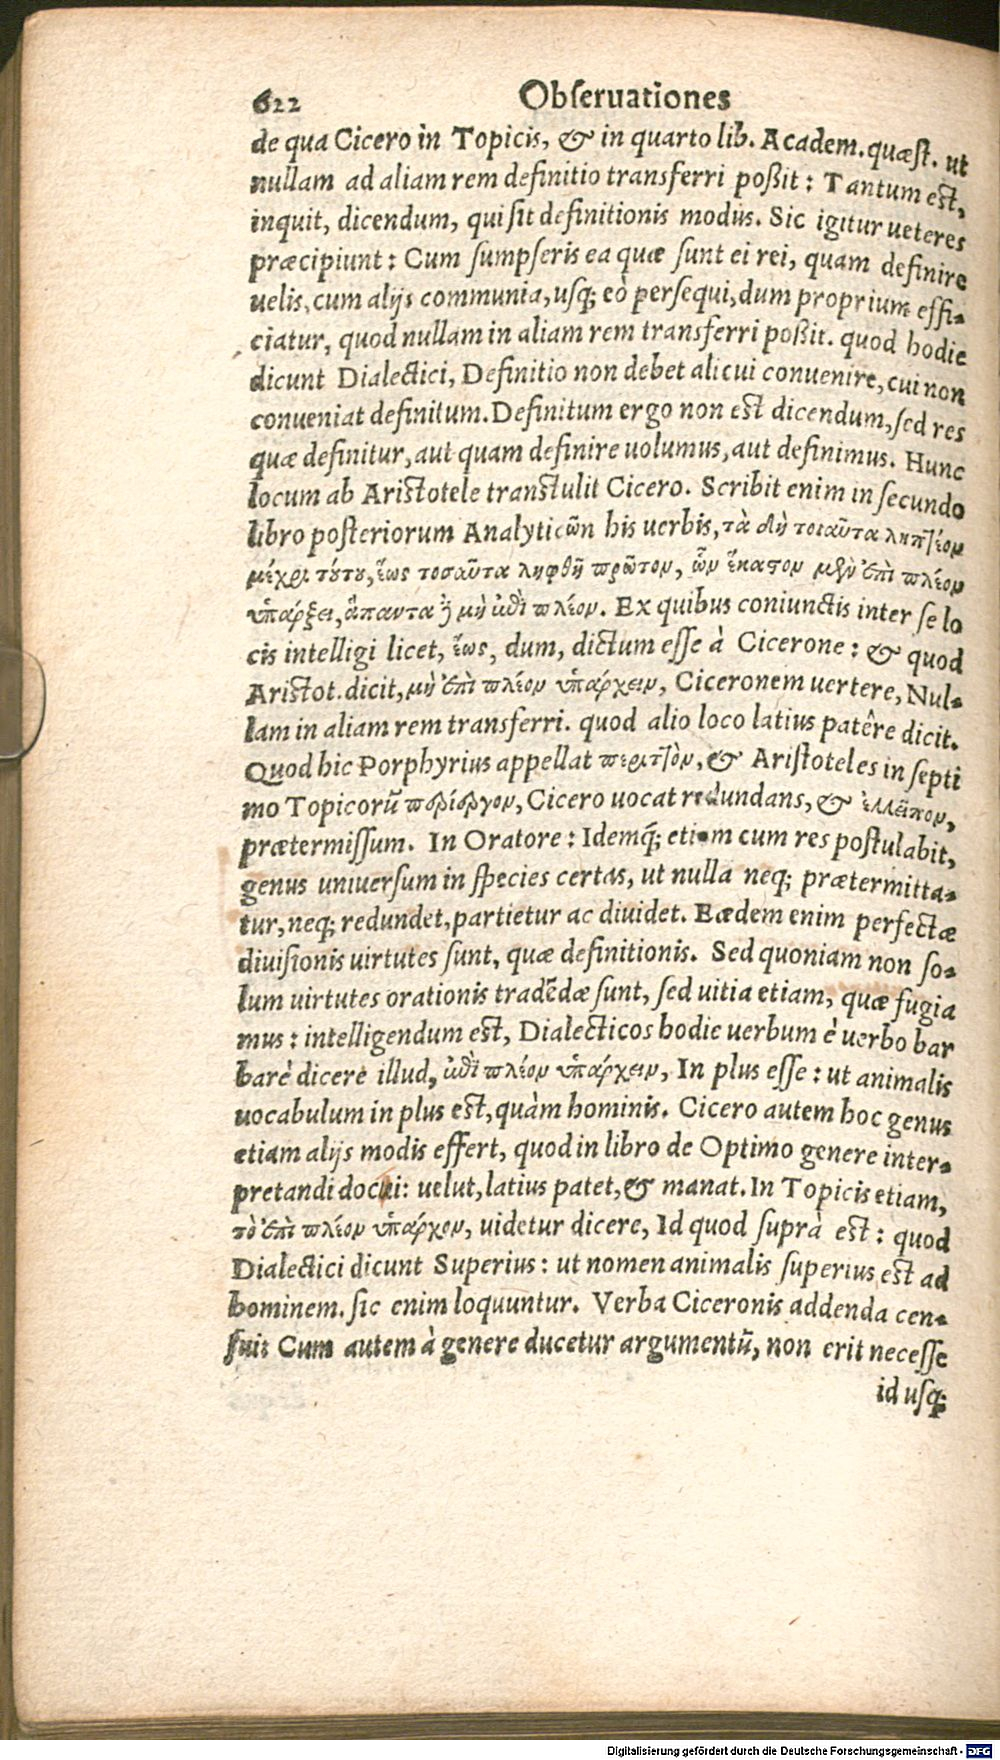 622 Obſeruationes
de qua Cicero in Topicis, & in quarto lib. Academ. quæſt. ut
nullam ad aliam rem definitio transferri poßit: Tantum est,
inquit, dicendum, qui ſit definitionis modus. Sic igitur ueteres
præcipiunt: Cum ſumpſeris ea quæ ſunt ei rei, quam definire
uelis, cum alijs communia, uſq; eò perſequi, dum proprium effi-
ciatur, quod nullam in aliam rem transferri poßit. quod hodie
dicunt Dialectici, Definitio non debet alicui conuenire, cui non
conueniat definitum. Definitum ergo non est dicendum, ſed res
quæ definitur, aut quam definire uolumus, aut definimus. Hunc
locum ab Aristotele transtulit Cicero. Scribit enim in ſecundo
libro poſteriorum Analyticῶn his uerbis, τὰ δὴ τοιαῦτα ληπτέον
μέχρι τούτου, ἕως τοσαῦτα ληφθῇ πρῶτον, ὧν ἕκαστον μὲν ἐπὶ πλέον
ὑπάρξει, ἅπαντα δὲ μὴ ἐπὶ πλέον. Ex quibus coniunctis inter ſe lo
cis intelligi licet, ἕως, dum, dictum eſſe à Cicerone: & quod
Aristot. dicit, μὴ ἐπὶ πλέον ὑπάρχειν, Ciceronem uertere, Nul-
lam in aliam rem transferri. quod alio loco latius patêre dicit.
Quod hic Porphyrius appellat περιττὸν, & Ariſtoteles in ſepti
mo Topicorũ περίεργον, Cicero uocat redundans, & ἐλλεῖπον,
prætermiſſum. In Oratore: Idemq́; etiam cum res poſtulabit,
genus uniuerſum in ſpecies certas, ut nulla neq; prætermitta-
tur, neq; redundet, partietur ac diuidet. Eædem enim perfectæ
diuiſionis uirtutes ſunt, quæ definitionis. Sed quoniam non ſo-
lum uirtutes orationis tradẽdæ ſunt, ſed uitia etiam, quæ fugia
mus: intelligendum est, Dialecticos hodie uerbum è uerbo bar
barè dicere illud, ἐπὶ πλέον ὑπάρχειν, In plus eſſe: ut animalis
uocabulum in plus est, quàm hominis. Cicero autem hoc genus
etiam alijs modis effert, quod in libro de Optimo genere inter-
pretandi docui: uelut, latius patet, & manat. In Topicis etiam,
τὸ ἐπὶ πλέον ὑπάρχον, uidetur dicere, Id quod ſuprà est: quod
Dialectici dicunt Superius: ut nomen animalis ſuperius est ad
hominem. ſic enim loquuntur. Verba Ciceronis addenda cen-
ſui: Cum autem à genere ducetur argumentũ, non erit neceſſe
id uſq;
Digitalisierung gefördert durch die Deutsche Forschungsgemeinschaft - DFG